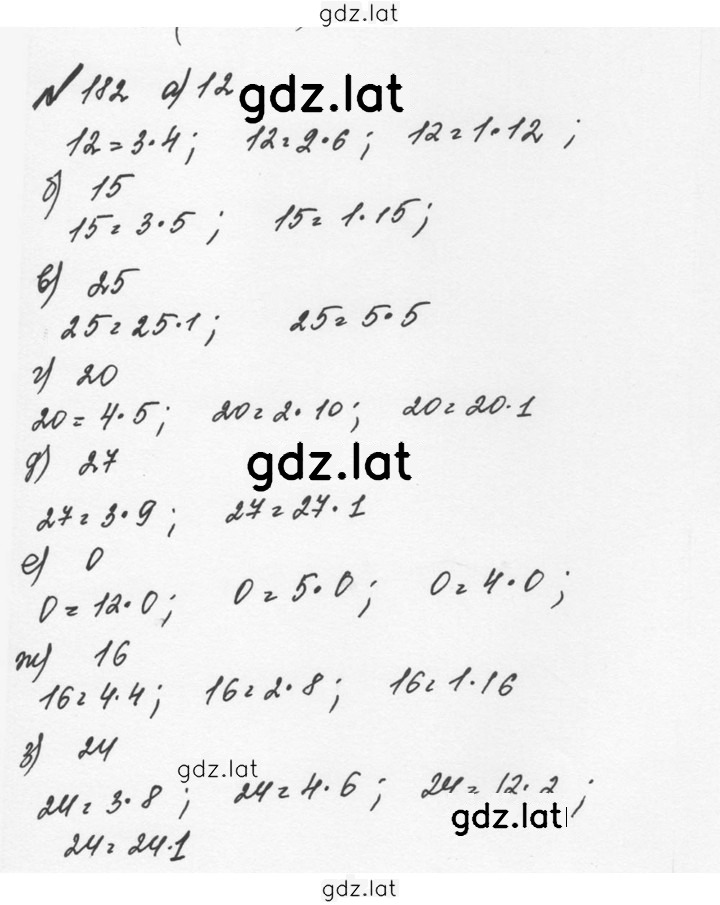 gdz.lat
№ 182 а) 12 gdz.lat
12 = 3·4; 12 = 2·6; 12 = 1·12;
б) 15
15 = 3·5; 15 = 1·15;
в) 25
25 = 25·1; 25 = 5·5
г) 20
20 = 4·5; 20 = 2·10; 20 = 20·1
д) 27 gdz.lat
27 = 3·9; 27 = 27·1
е) 0
0 = 12·0; 0 = 5·0; 0 = 4·0;
ж) 16
16 = 4·4; 16 = 2·8; 16 = 1·16
з) 24 gdz.lat
24 = 3·8; 24 = 4·6; 24 = 12·2;
gdz.lat
24 = 24·1
gdz.lat